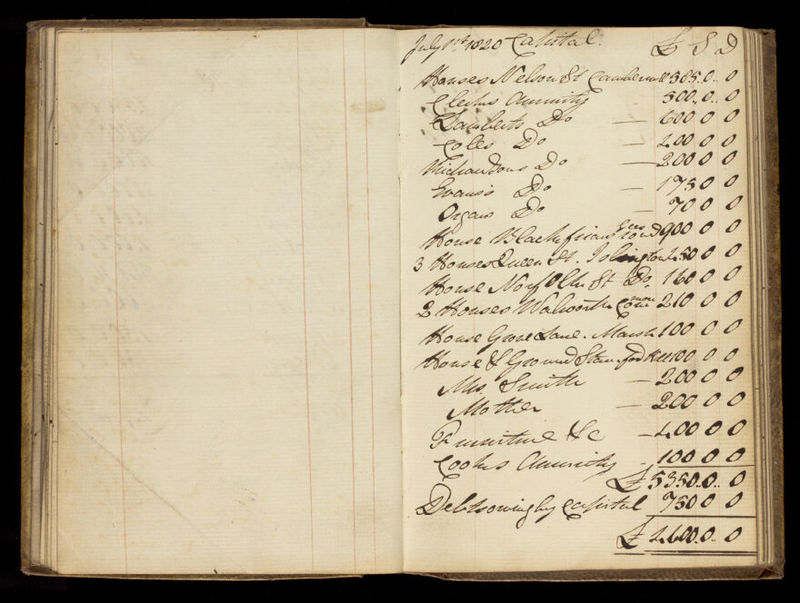 July 1st 1820 Capital. £ S D
Houses Nelson St Camberwell 585.0.. 0
Clerks Annuity 500..0.. 0
Lamberts Do — 600 0 0
Coles Do — 400 0 0
Do — 200 0 0
Evans's Do — 175 0 0
Organs Do — 70 0 0
House Blackfriars Road 900 0 0
3 Houses Queen St. Islington 450 0 0
House Norfolk St Do 160 0 0
2 Houses Walworth Common 210 0 0
House Grove Lane. Marsh 100 0 0
House & Ground Stamford 100 0 0
Mrs Smith — 200 0 0
Mother — 200 0 0
Furniture &c — 400 0 0
Cooks Annuity 100 0 0
£ 5350..0.. 0
Debts owing by Capital 750 0 0
£ 4600..0.. 0